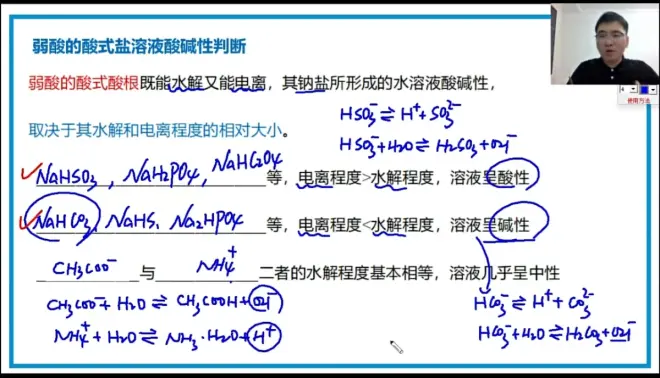 弱酸的酸式盐溶液酸碱性判断
弱酸的酸式酸根既能水解又能电离，其钠盐所形成的水溶液酸碱性，
取决于其水解和电离程度的相对大小。
HSO₃⁻⇌H⁺+SO₃²⁻
HSO₃⁻+H2O⇌H₂SO₃+OH⁻
NaHSO₃，NaH₂PO₄，NaHC₂O₄等，电离程度>水解程度，溶液呈酸性
NaHCO₃、NaHS、Na₂HPO₄等，电离程度<水解程度，溶液呈碱性
CH₃COO⁻与NH₄⁺二者的水解程度基本相等，溶液几乎呈中性
CH₃COO⁻+H₂O⇌CH₃COOH+OH⁻
NH₄⁺+H₂O⇌NH₃·H₂O+H⁺
HCO₃⁻⇌H⁺+CO₃²⁻
HCO₃⁻+H2O⇌H₂CO₃+OH⁻
使用方法